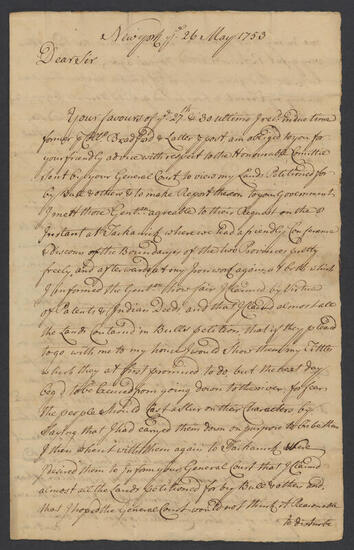 New york ye. 26 May 1753
Dear Sir
Your favours of ye. 27th & 30 ultimo I recd. in due time
former & Mr. Bradford & Latter & post am obliged to you for
your friendly advice with respect to the Honourable Comittee
sent by your General Court to view my Lands Petitioned for
by Bull & others & to make Report thereon to your Government
I mett those Gentmn. agreable to their Request on the 8
Instant at Tachanick where we had a friendly Conference
& discourse of the Boundarys of the two Provinces pretty
freely, and afterwards & my Son went again, at both which
I informed the Gentmn. how far I claimed by Virtue
of Patents & Indian Deeds and that I Claimed almost all
the Lands Contained in Bulls petition, that if they pleased
to go with me to my house I would Show them my Tittles
which they at first promised to do, but the next day
beg'd to be Excused from going down to the river for fear
the people Should Cast a slur on their Characters by
saying that I had carried them down on purpose to be
I then where I with them again to Tachanick
I desired them to Inform your General Court that I Claimed
almost all the Lands petitioned for by Bull & others and
that I hoped the General Court would not think it Reasonable
to disturbe